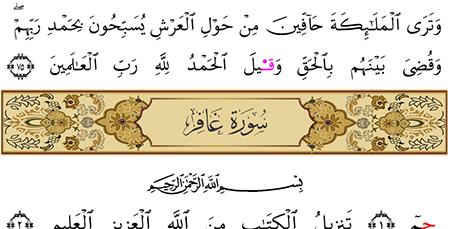 وَتَرَى ٱلْمَلَٰٓئِكَةَ حَآفِّينَ مِنْ حَوْلِ ٱلْعَرْشِ يُسَبِّحُونَ بِحَمْدِ رَبِّهِمْۖ
وَقُضِىَ بَيْنَهُم بِٱلْحَقِّ وَقِيلَ ٱلْحَمْدُ لِلَّهِ رَبِّ ٱلْعَٰلَمِينَ ﴿٧٥﴾
سُورَةُ غَافِرٍ
بِسْمِ ٱللَّهِ ٱلرَّحْمَٰنِ ٱلرَّحِيمِ
حمٓ ﴿١﴾ تَنزِيلُ ٱلْكِتَٰبِ مِنَ ٱللَّهِ ٱلْعَزِيزِ ٱلْعَلِيمِ ﴿٢﴾